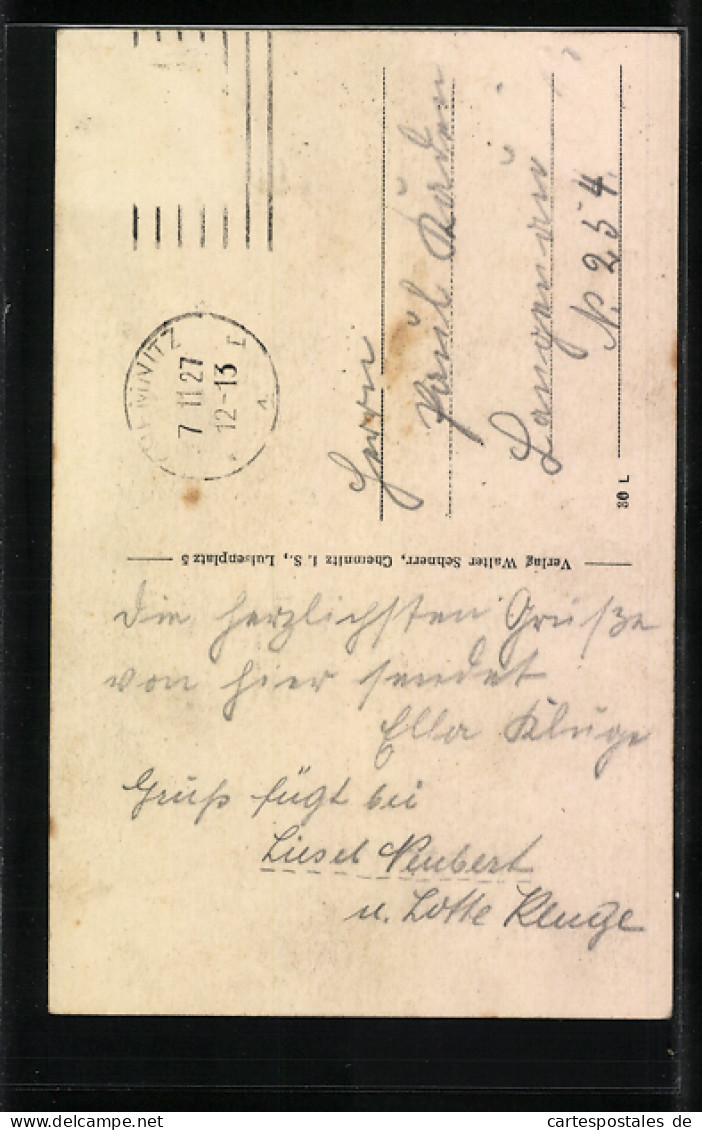 CHEMNITZ
7 11 27
12-13
Herrn
Paul Kaden
Langenau
N. 254.
30 L
Verlag Walter Schnerr, Chemnitz i. S., Luisenplatz 5
Die herzlichsten Grüße
von hier sendet
Ella Kluge
Gruß fügt bei
Liesel Neubert
u. Lotte Kluge
cartespostales de